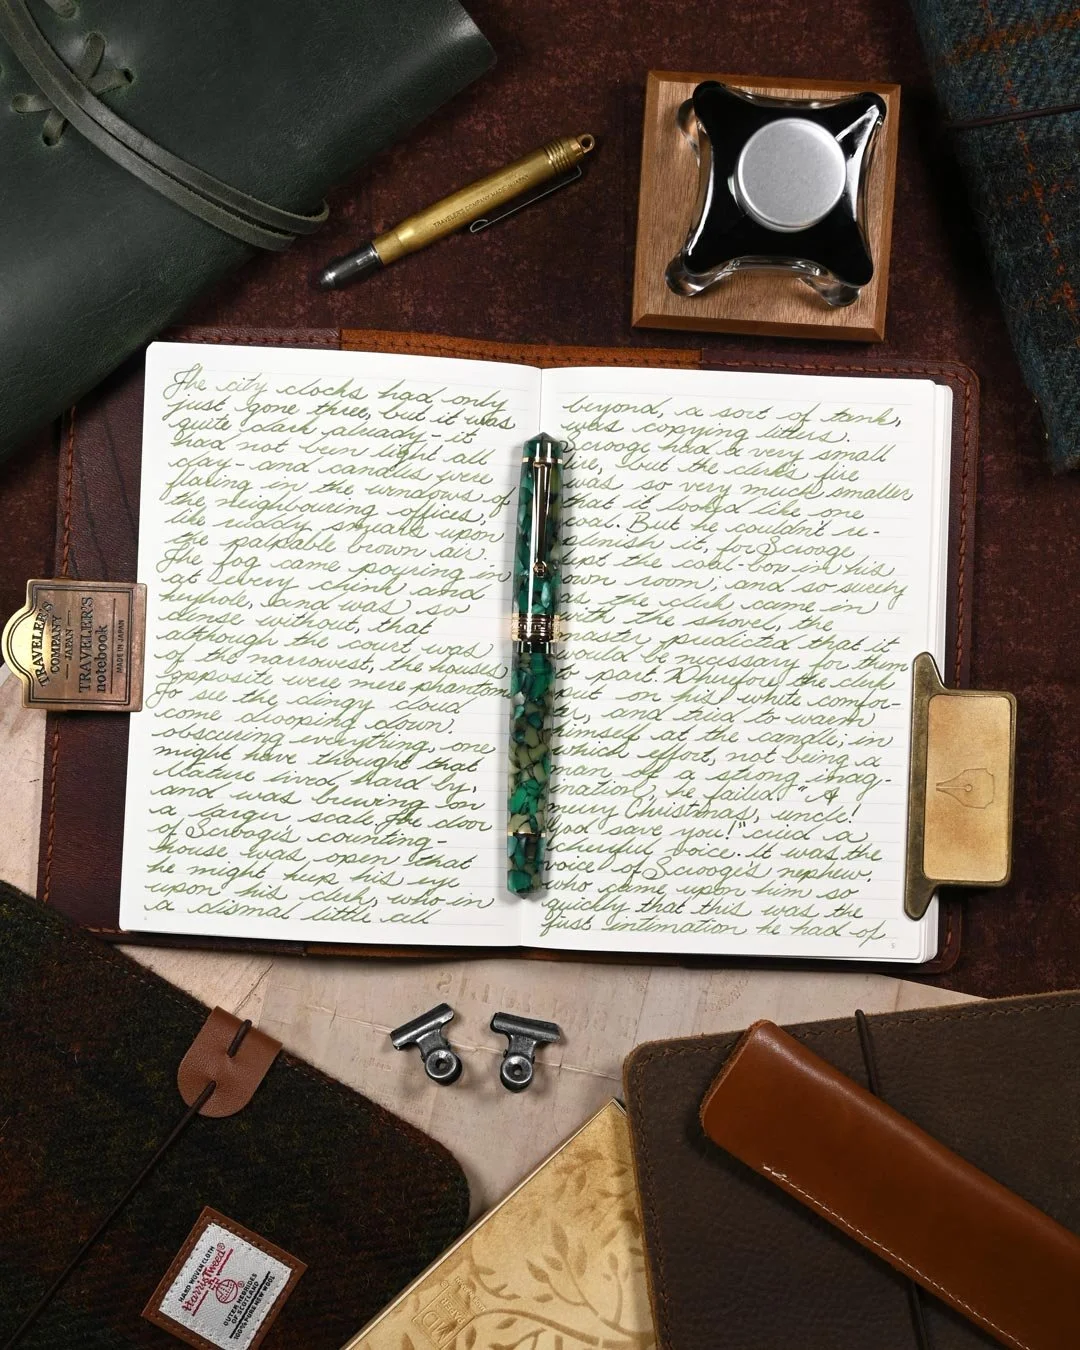 TRAVELER'S COMPANY MADE IN JAPAN
The city clocks had only
just gone three, but it was
quite dark already - it
had not been light all
day - and candles were
flaring in the windows of
the neighbouring offices,
like ruddy smears upon
the palpable brown air.
The fog came pouring in
at every chink and
keyhole, and was so
dense without, that
although the court was
of the narrowest, the houses
opposite were mere phantoms
To see the dingy cloud
come drooping down,
obscuring everything, one
might have thought that
Nature lived hard by,
and was brewing on
a larger scale. The door
of Scrooge's counting-
house was open that
he might keep his eye
upon his clerk, who in
a dismal little cell
beyond, a sort of tank,
was copying letters.
Scrooge had a very small
fire, but the clerk's fire
was so very much smaller
that it looked like one
coal. But he couldn't re-
plenish it, for Scrooge
kept the coal-box in his
own room; and so surely
as the clerk came in
with the shovel, the
master predicted that it
would be necessary for them
to part. Wherefore the clerk
put on his white comfor-
ter, and tried to warm
himself at the candle; in
which effort, not being a
man of a strong imag-
ination, he failed. "A
merry Christmas, uncle!
God save you!" cried a
cheerful voice. It was the
voice of Scrooge's nephew,
who came upon him so
quickly that this was the
first intimation he had of
TRAVELER'S
COMPANY
JAPAN
TRAVELER'S
notebook
MADE IN JAPAN
HAND WOVEN CLOTH
Harris Tweed®
OUTER HEBRIDES
OF SCOTLAND
100% PURE NEW WOOL
MD